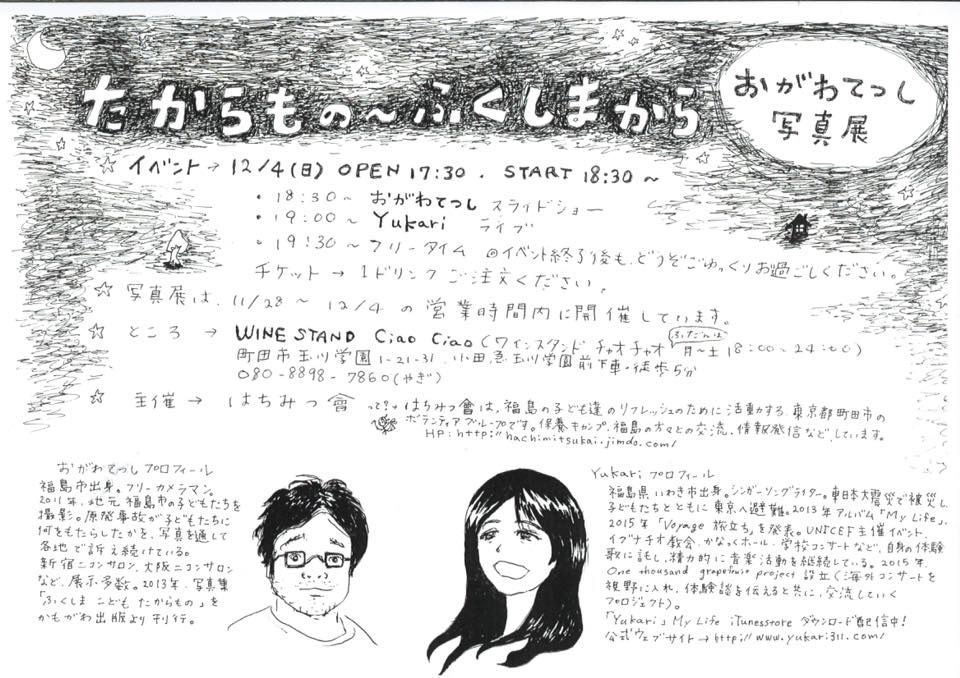 たからもの〜ふくしまから
おがわてつし
写真展
☆ イベント→ 12/4(日) OPEN 17:30 . START 18:30 〜
・18:30〜 おがわてつし スライドショー
・19:00〜 Yukari ライブ
・19:30〜 フリータイム @イベント終了後も、どうぞごゆっくりお過ごしください。
チケット → 1ドリンク ご注文ください。
☆ 写真展は、11/28 〜 12/4 の営業時間内に開催しています。
☆ ところ → WINE STAND Ciao Ciao (ワインスタンド チャオチャオ ふだんは 月〜土 18:00〜24:00)
町田市玉川学園1-21-31 小田急玉川学園前下車・徒歩5分
080-8898-7860(やぎ)
☆ 主催 → はちみつ會 って?→ はちみつ會は、福島の子ども達のリフレッシュのために活動する、東京都町田市の
ボランティアグループです。保養キャンプ、福島の方々との交流、情報発信などしています。
HP:http://hachimitsukai.jimdo.com/
おがわてつし プロフィール
福島市出身。フリーカメラマン。
2011年、地元福島市の子どもたちを
撮影。原発事故が子どもたちに
何をもたらしたかを、写真を通して
各地で訴え続けている。
新宿ニコンサロン、大阪ニコンサロン
など、展示多数。2013年、写真集
「ふくしま こども たからもの」を
かもがわ出版より刊行。
Yukari プロフィール
福島県いわき市出身。シンガーソングライター。東日本大震災で被災し、
子どもたちとともに東京へ避難。2013年アルバム「My Life」、
2015年「Voyage 旅立ち」を発表。UNICEF主催イベント、
イグナチオ教会、かなっくホール、学校コンサートなど、自身の体験
歌に託し、精力的に音楽活動を継続している。2015年
One thousand grapefruit project 設立(海外コンサートを
視野に入れ、体験談を伝えると共に、交流していく
プロジェクト)。
「Yukari」My Life iTunesstore ダウンロード配信中!
公式ウェブサイト→http://www.yukari311.com/